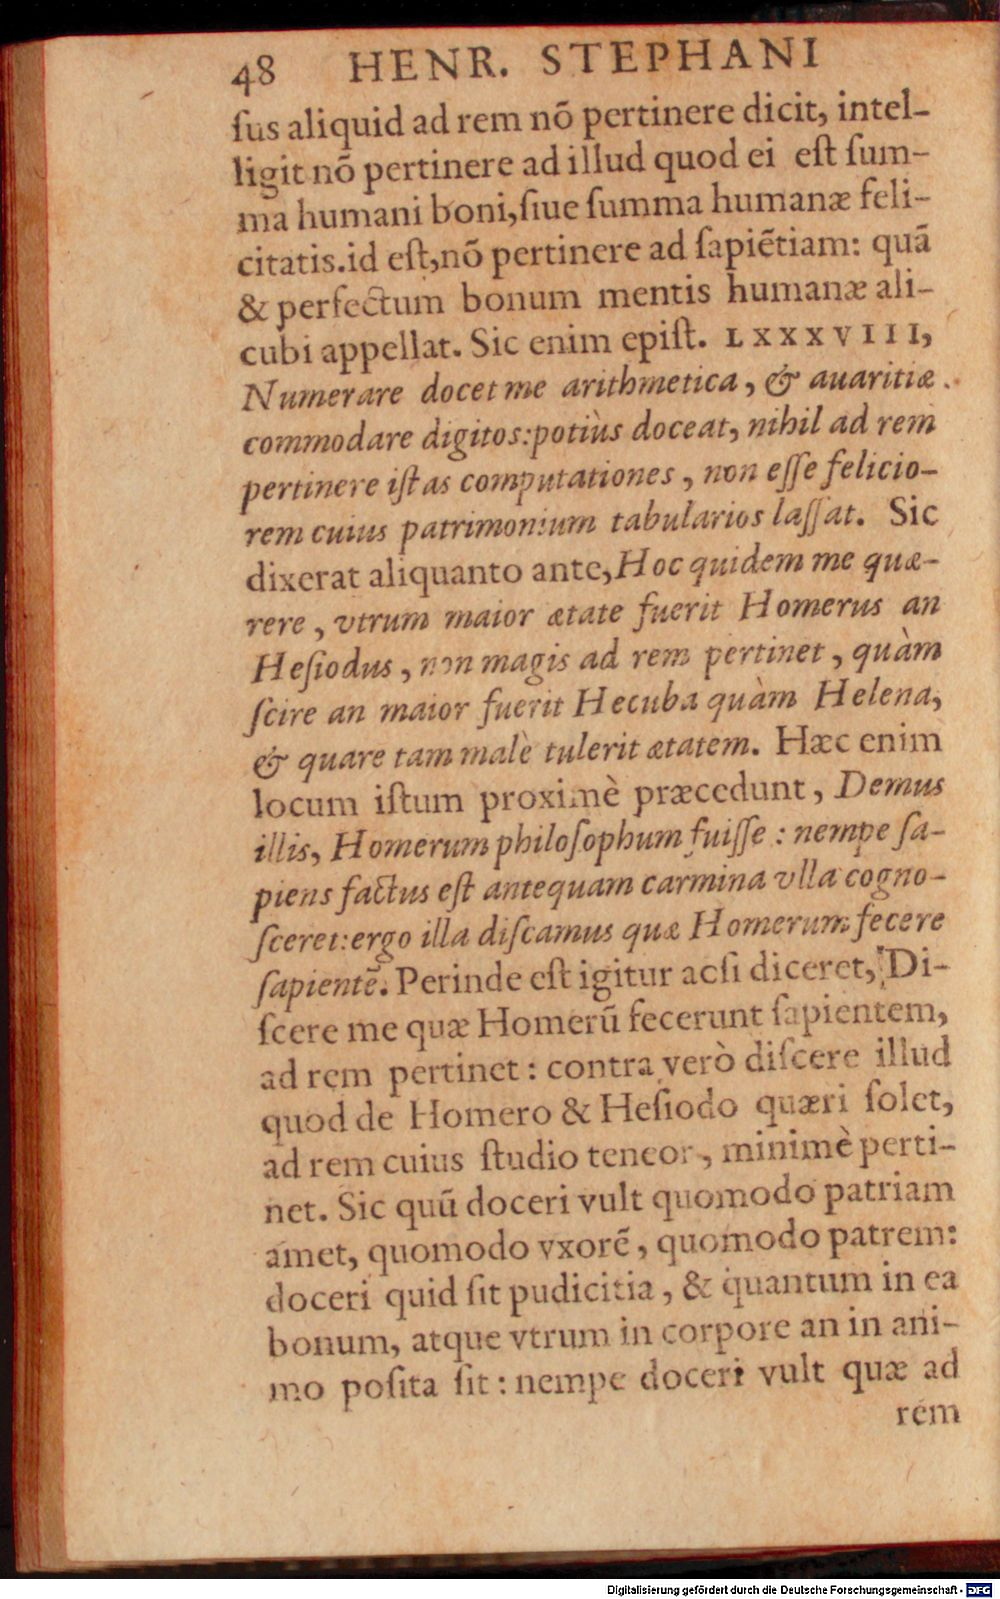 48 HENR. STEPHANI
ſus aliquid ad rem nõ pertinere dicit, intel-
ligit nõ pertinere ad illud quod ei eſt ſum-
ma humani boni,ſiue ſumma humanæ feli-
citatis.id eſt,nõ pertinere ad ſapiẽtiam: quã
& perfectum bonum mentis humanæ ali-
cubi appellat. Sic enim epiſt. LXXXVIII,
Numerare docet me arithmetica, & auaritiæ
commodare digitos:potiùs doceat, nihil ad rem
pertinere iſtas computationes, non eſſe felicio-
rem cuius patrimonium tabularios laſſat. Sic
dixerat aliquanto ante,Hoc quidem me quæ-
rere, vtrum maior ætate fuerit Homerus an
Heſiodus, non magis ad rem pertinet, quàm
ſcire an maior fuerit Hecuba quàm Helena,
& quare tam malè tulerit ætatem. Hæc enim
locum iſtum proximè præcedunt, Demus
illis, Homerum philoſophum fuiſſe: nempe ſa-
piens factus eſt antequam carmina vlla cogno-
ſceret:ergo illa diſcamus quæ Homerum fecere
ſapientẽ. Perinde eſt igitur acſi diceret, Di-
ſcere me quæ Homerũ fecerunt ſapientem,
ad rem pertinet: contra verò diſcere illud
quod de Homero & Heſiodo quæri ſolet,
ad rem cuius ſtudio teneor, minimè perti-
net. Sic quũ doceri vult quomodo patriam
amet, quomodo vxorẽ, quomodo patrem:
doceri quid ſit pudicitia, & quantum in ea
bonum, atque vtrum in corpore an in ani-
mo poſita ſit: nempe doceri vult quæ ad
rem
Digitalisierung gefördert durch die Deutsche Forschungsgemeinschaft - DFG